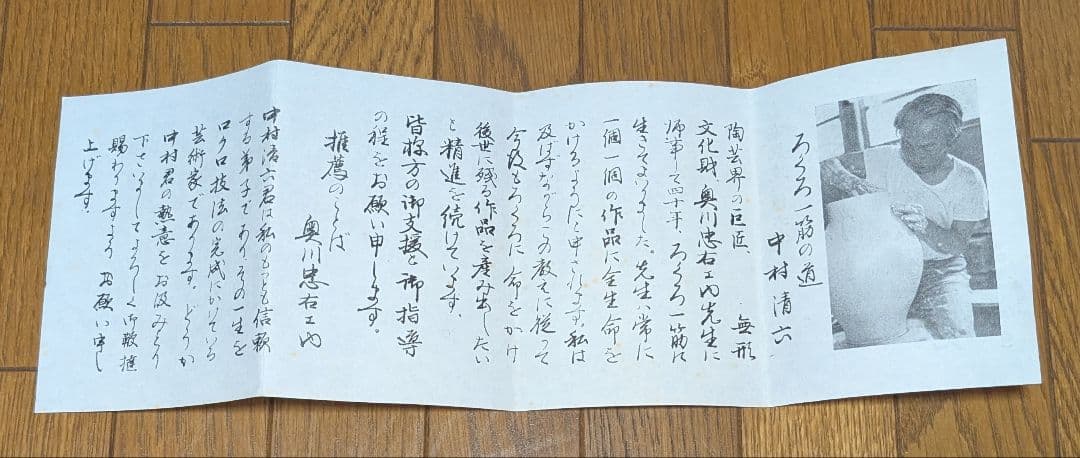 ろくろ一筋の道
中村清六
陶芸界の巨匠、無形
文化財奥川忠右エ門先生に
師事して四十年、ろくろ一筋に
生きてまいりました。先生は常に
一個一個の作品に全生命を
かけるようにと申されます。私は
及ばずながらこの教えに従って
今後もろくろに命をかけ
後世に残る作品を産み出したい
と精進を続けています。
皆様方の御支援と御指導
の程をお願い申します。
推薦のことば
奥川忠右エ門
中村清六君は私のもっとも信頼
する弟子であり、その一生を
ロクロ技法の完成にかけている
芸術家であります。どうか
中村君の熱意をお汲みとり
下さいましてよろしく御鞭撻
賜わりますようお願い申し
上げます。